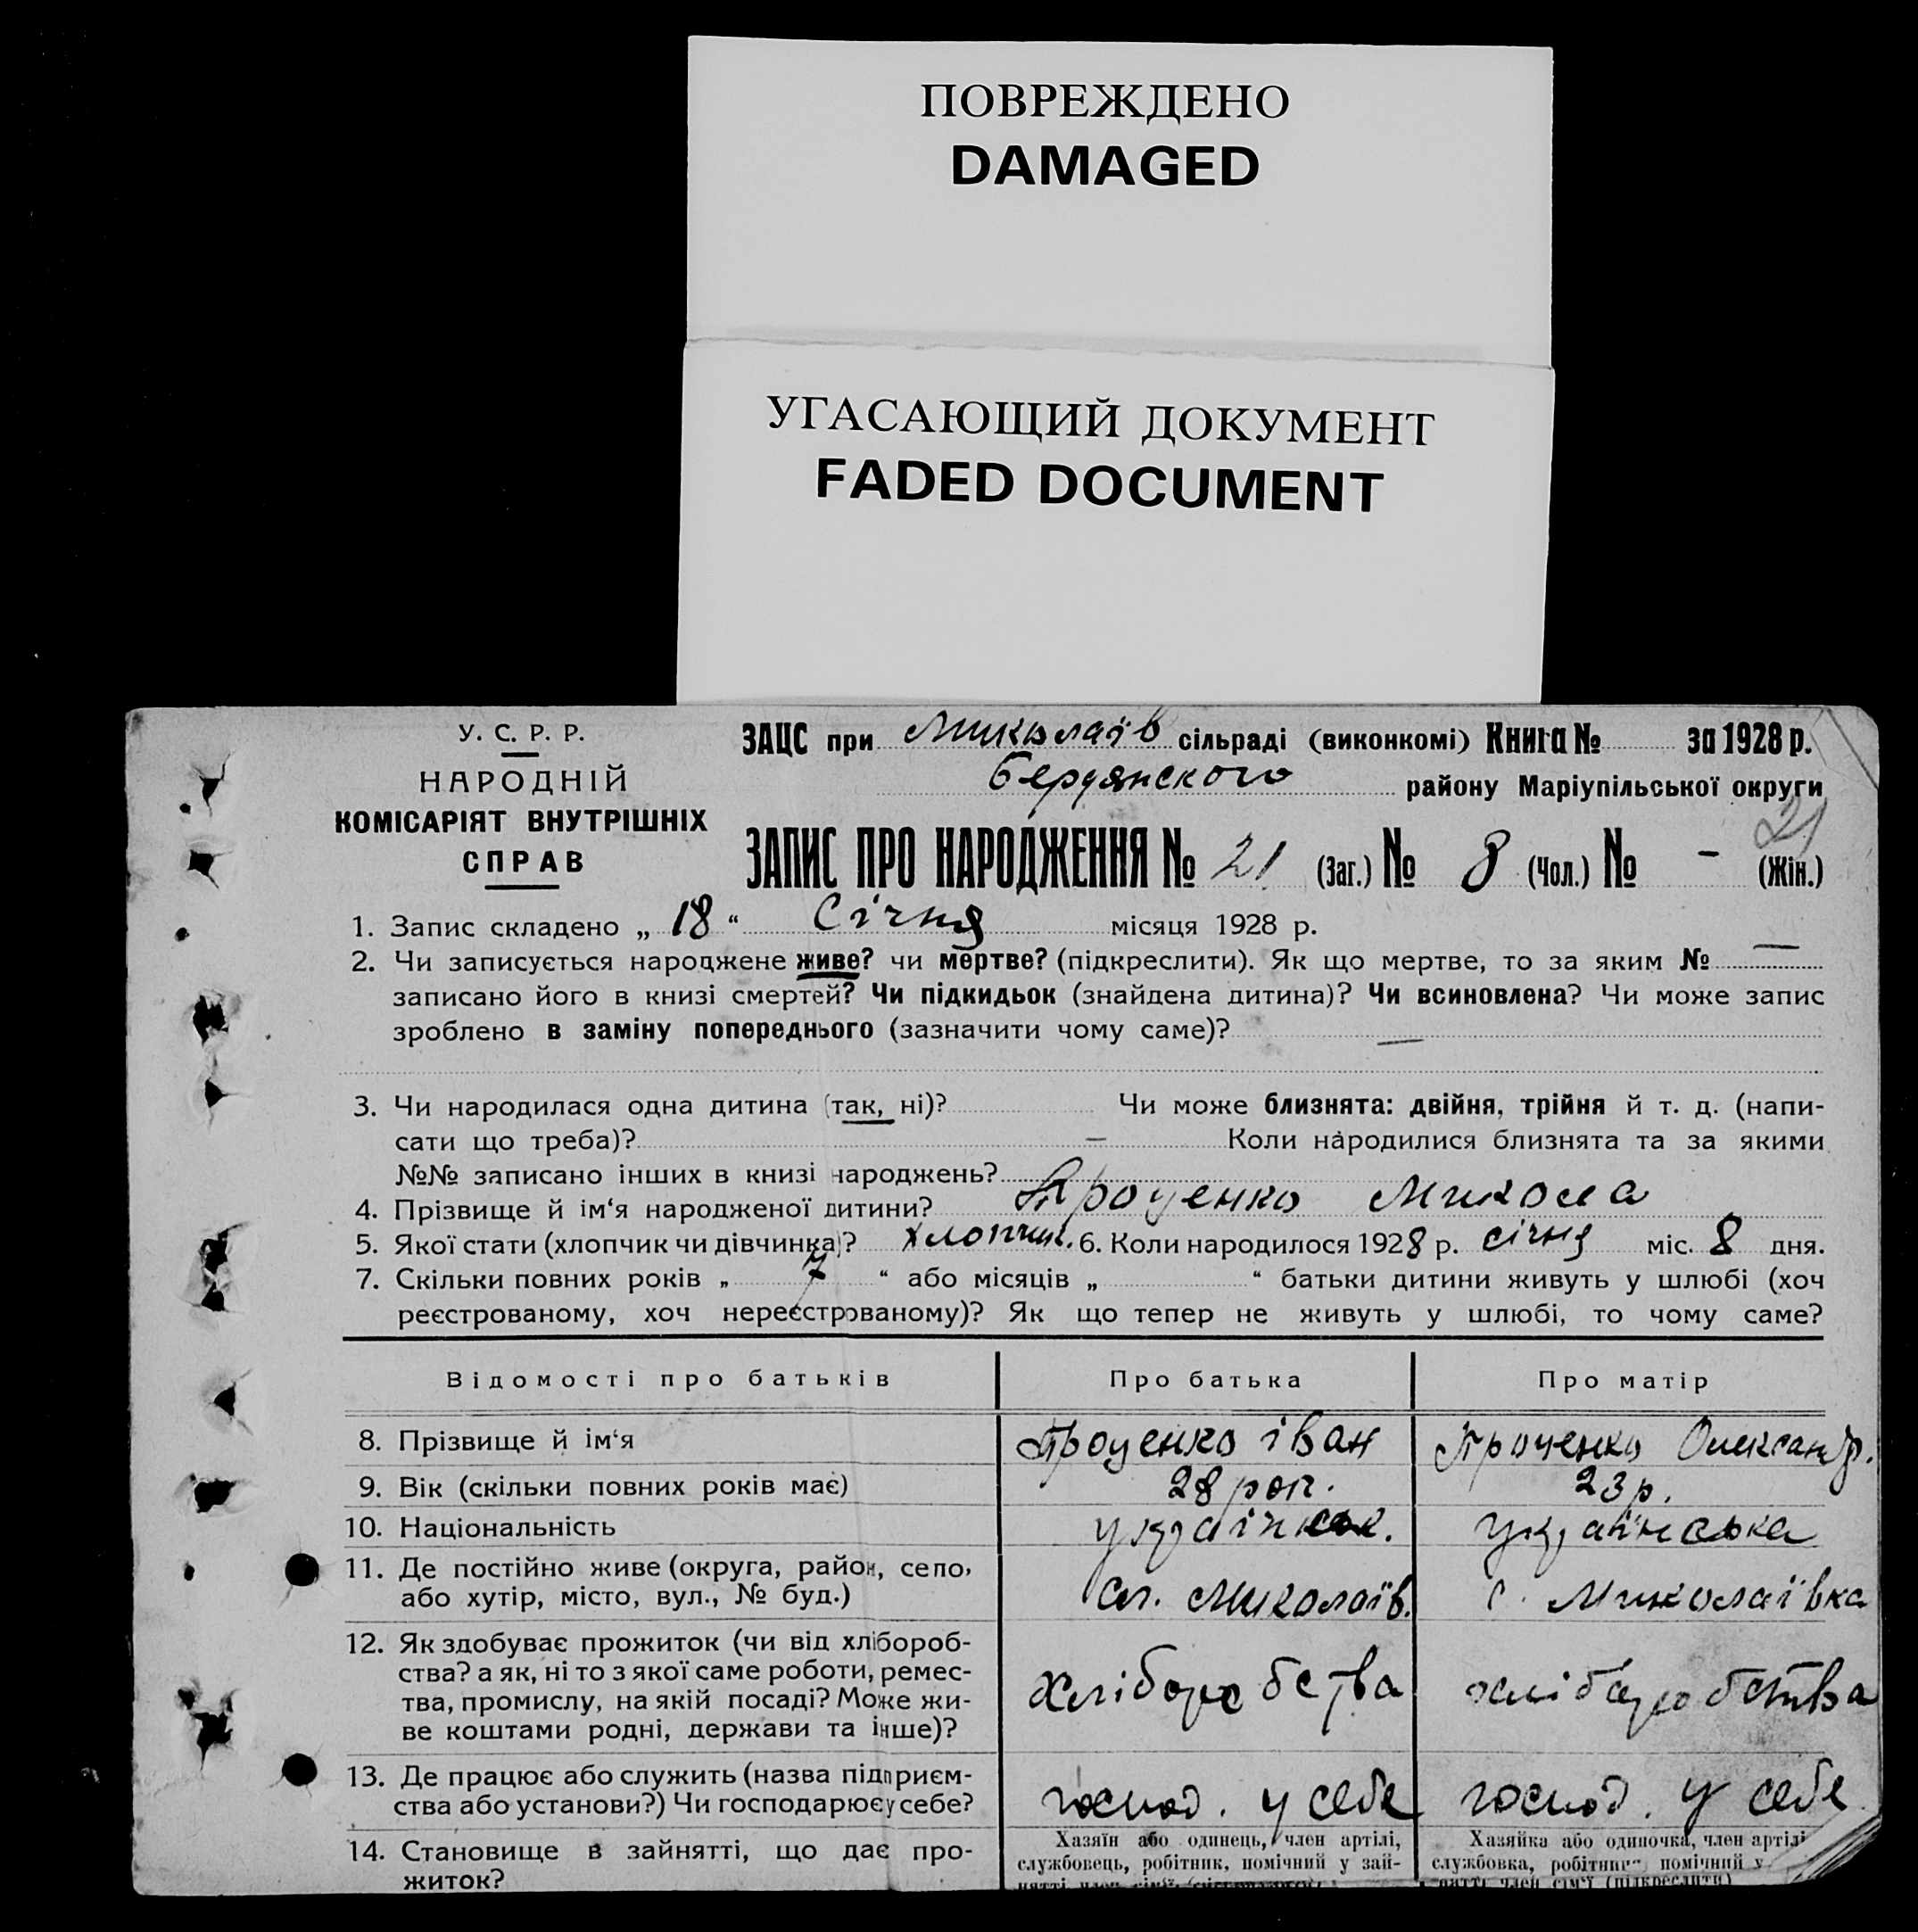 ПОВРЕЖДЕНО
DAMAGED
УГАСАЮЩИЙ ДОКУМЕНТ
FADED DOCUMENT
У. С. Р. Р.
НАРОДНІЙ
КОМІСАРІЯТ ВНУТРІШНІХ
СПРАВ
ЗАЦС при Миколаїв сільраді (виконкомі) Книга № за 1928 р.
Бердянского району Маріупільської округи
21
ЗАПИС ПРО НАРОДЖЕННЯ № 21 (Заг.) № 8 (Чол.) № - (Жін.)
1. Запис складено „ 18 “ Січня місяця 1928 р.
2. Чи записується народжене живе? чи мертве? (підкреслити). Як що мертве, то за яким № —
записано його в книзі смертей? Чи підкидьок (знайдена дитина)? Чи всиновлена? Чи може запис
зроблено в заміну попереднього (зазначити чому саме)? —
3. Чи народилася одна дитина (так, ні)? Чи може близнята: двійня, трійня й т. д. (напи-
сати що треба)? — Коли народилися близнята та за якими
№№ записано інших в книзі народжень?
4. Прізвище й ім‘я народженої дитини? Проценко Микола
5. Якої стати (хлопчик чи дівчинка)? хлопчик. 6. Коли народилося 1928 р. січня міс. 8 дня.
7. Скільки повних років „ 7 “ або місяців „ “ батьки дитини живуть у шлюбі (хоч
реєстрованому, хоч нереєстрованому)? Як що тепер не живуть у шлюбі, то чому саме?
Відомості про батьків Про батька Про матір
8. Прізвище й ім‘я Проценко іван Проченко Олександр.
9. Вік (скільки повних років має) 28 рок. 23 р.
10. Національність українськ. українська
11. Де постійно живе (округа, район, село,
або хутір, місто, вул., № буд.) сл. Миколаїв. с. Миколаївка
12. Як здобуває прожиток (чи від хлібороб-
ства? а як, ні то з якої саме роботи, ремес-
тва, промислу, на якій посаді? Може жи-
ве коштами родні, держави та інше)? хліборобства хліборобства
13. Де працює або служить (назва підприєм-
ства або установи?) Чи господарює у себе? господ. у себе господ. у себе
14. Становище в зайнятті, що дає про-
житок?
Хазяїн або одинець, член артілі,
службовець, робітник, помічний у зай-
Хазяйка або одиночка, член артілі
службовка, робітниця помічний у
нятті член сім‘ї (підкреслити)